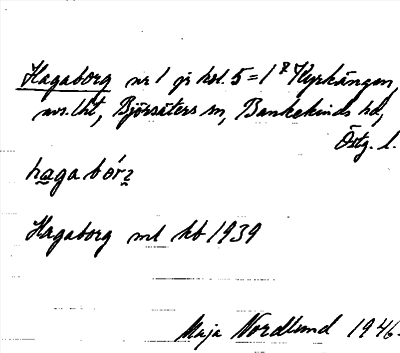 Hagaborg nr 1 på kol. 5 = 1⁸ Kyrkängen,
avs. lht, Björsäters sn, Bankekinds hd,
Östg. l.
hagabórj
Hagaborg ml kb 1939
Maja Nordlund 1946.